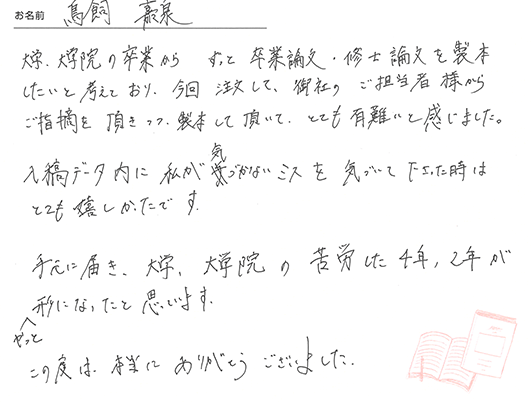 お名前 鳥飼 豪泉
大学、大学院の卒業から ずっと 卒業論文・修士論文を製本
したいと考えており、今回 注文して、御社の ご担当者様から
ご指摘を 頂きつつ、製本して頂いて、とても有難いと感じました。
入稿データ内に 私が気づかないミスを 気づいて下さった時は
とても嬉しかったです。
手元に届き、大学、大学院の 苦労した4年、2年が
やっと形になったと思います。
この度は、本当に ありがとうございました。